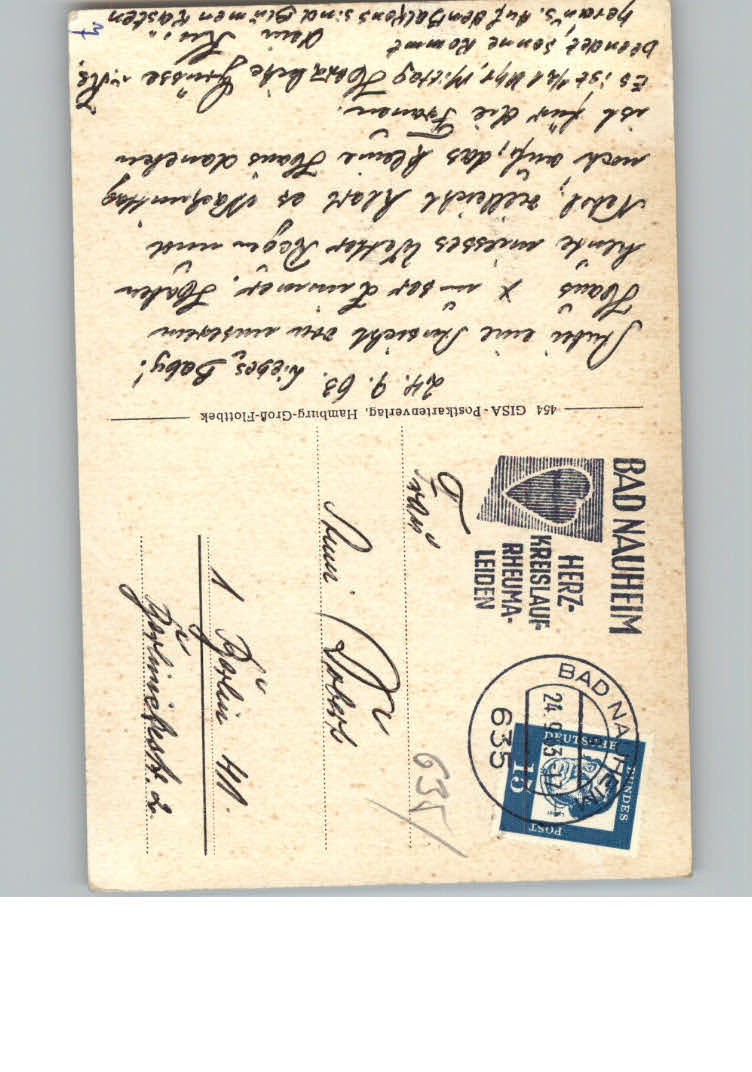 24.9.63. Liebes Baby!
eine Ansicht von unserem
Haus x unser Zimmer. Haben
heute miesses Wetter Regen und
Nebel, vielleicht klart es Nachmittag
noch auf, das kleine Haus daneben
ist für die Frauen.
Es ist 1/2 1 Uhr, Mittag Herzliche Grüsse
beendet, Sonne kommt Dein
heraus. Auf dem Balkons sind Blumen Kästen
454 GISA-Postkartenverlag, Hamburg-Groß-Flottbek
BAD NAUHEIM
HERZ-
KREISLAUF-
RHEUMA-
LEIDEN
BAD NAUHEIM
24.9.63
635
DEUTSCHE
BUNDES
POST
15
Frau
1 Berlin 41
2.
635/